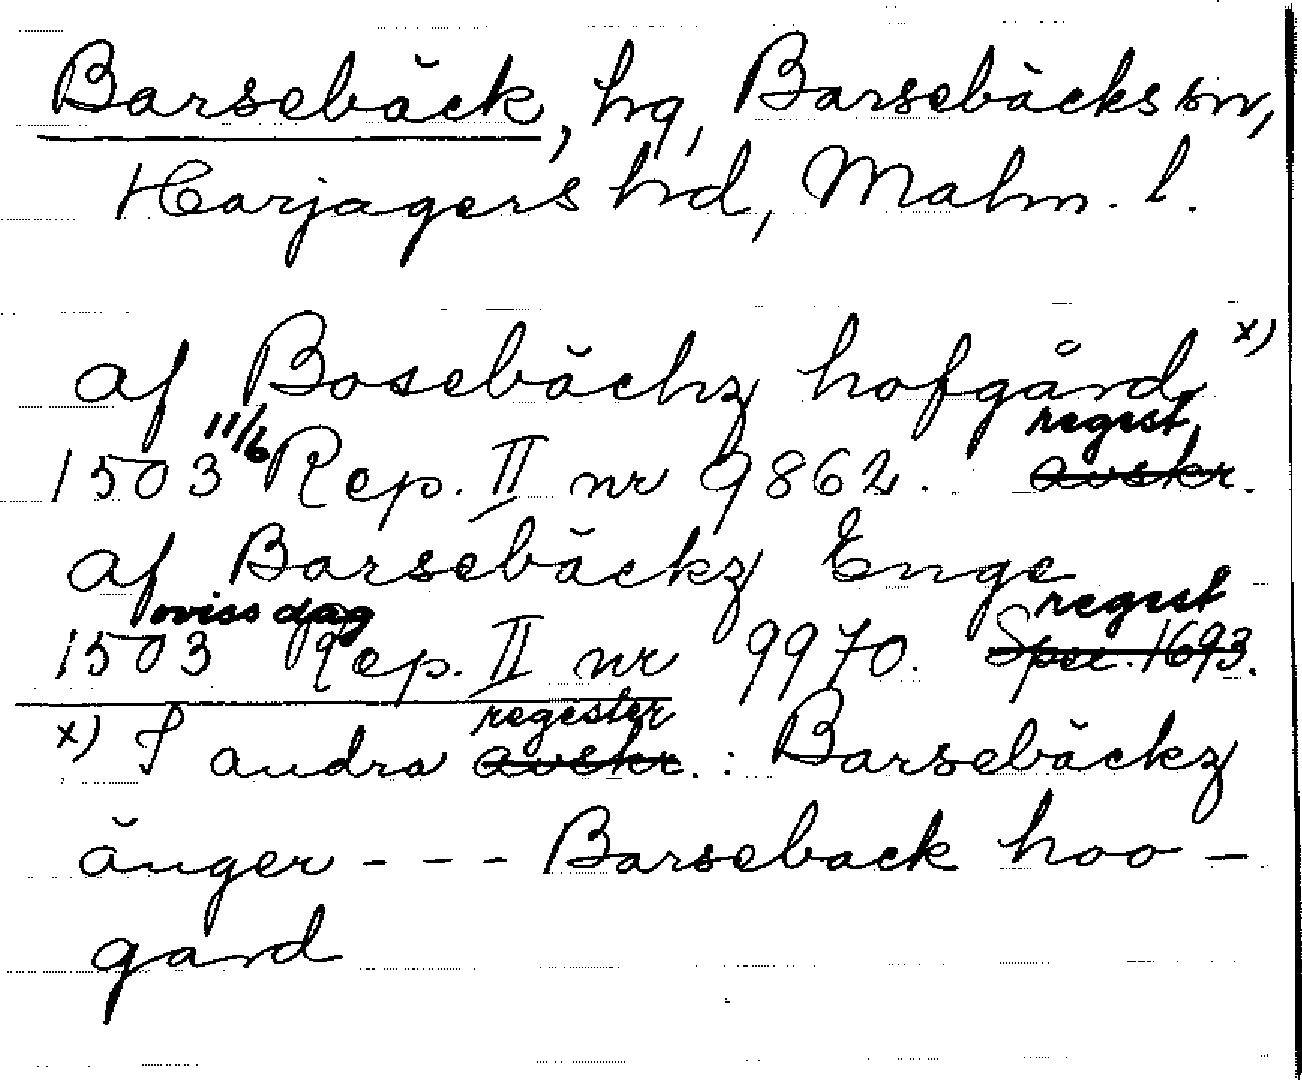 Barsebäck, hg, Barsebäcks sn,
Harjagers hd, Malm. l.
af Bosebächz hofgård x)
1503 11/6 Rep. II nr 9862. regest. avskr.
af Barsebäckz Enge
1503 oviss dag Rep. II nr 9970. regest Spec. 1693.
x) I andra regester avskr. : Barsebäckz
änger - - - Barseback hoo-
gard